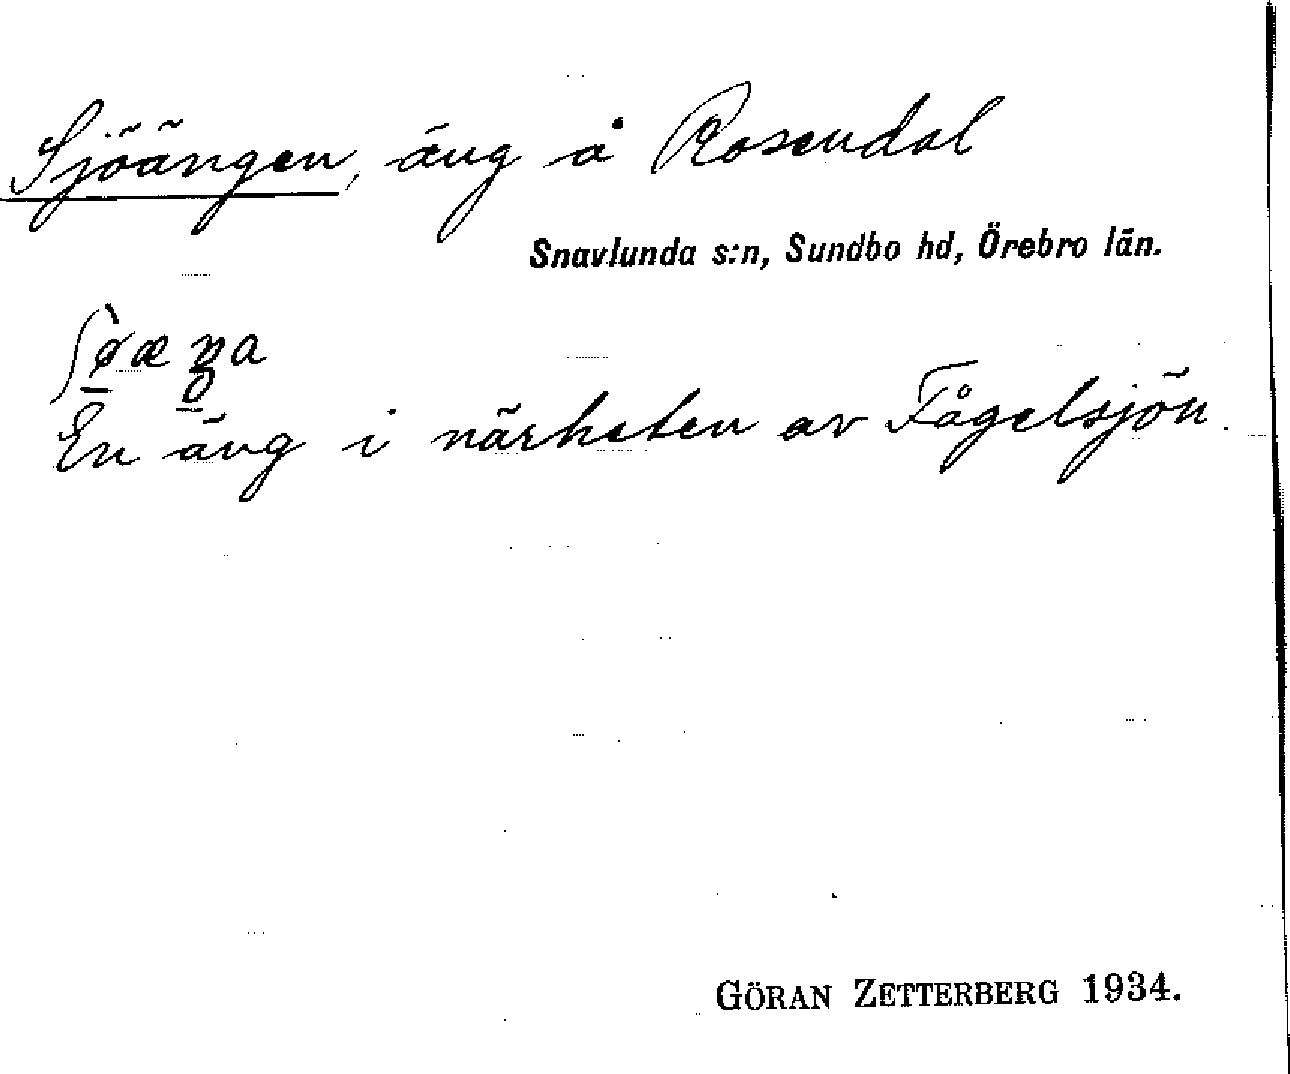 Sjöängen, äng å Rosendal
Snavlunda s:n, Sundbo hd, Örebro län.
ʃø̠̀æŋ̥a
En äng i närheten av Fågelsjön.
GÖRAN ZETTERBERG 1934.